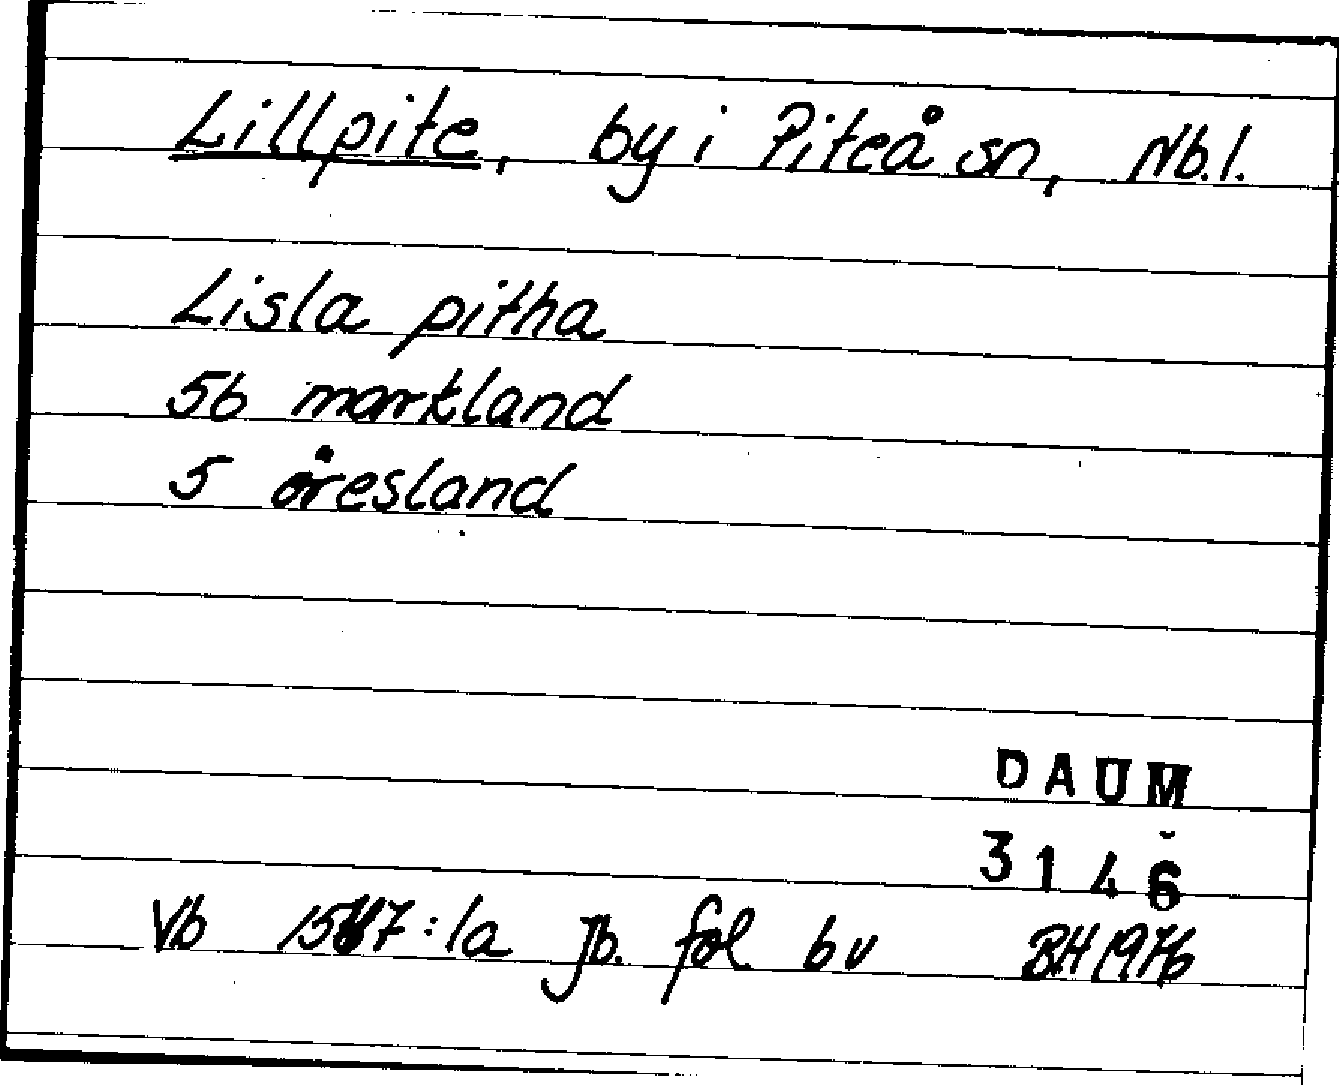 Lillpite, by i Piteå sn, Nb.l.
Lisla pitha
56 markland
5 öresland
DAUM
3146
Vb :1a Jb. fol 6v BH 1976